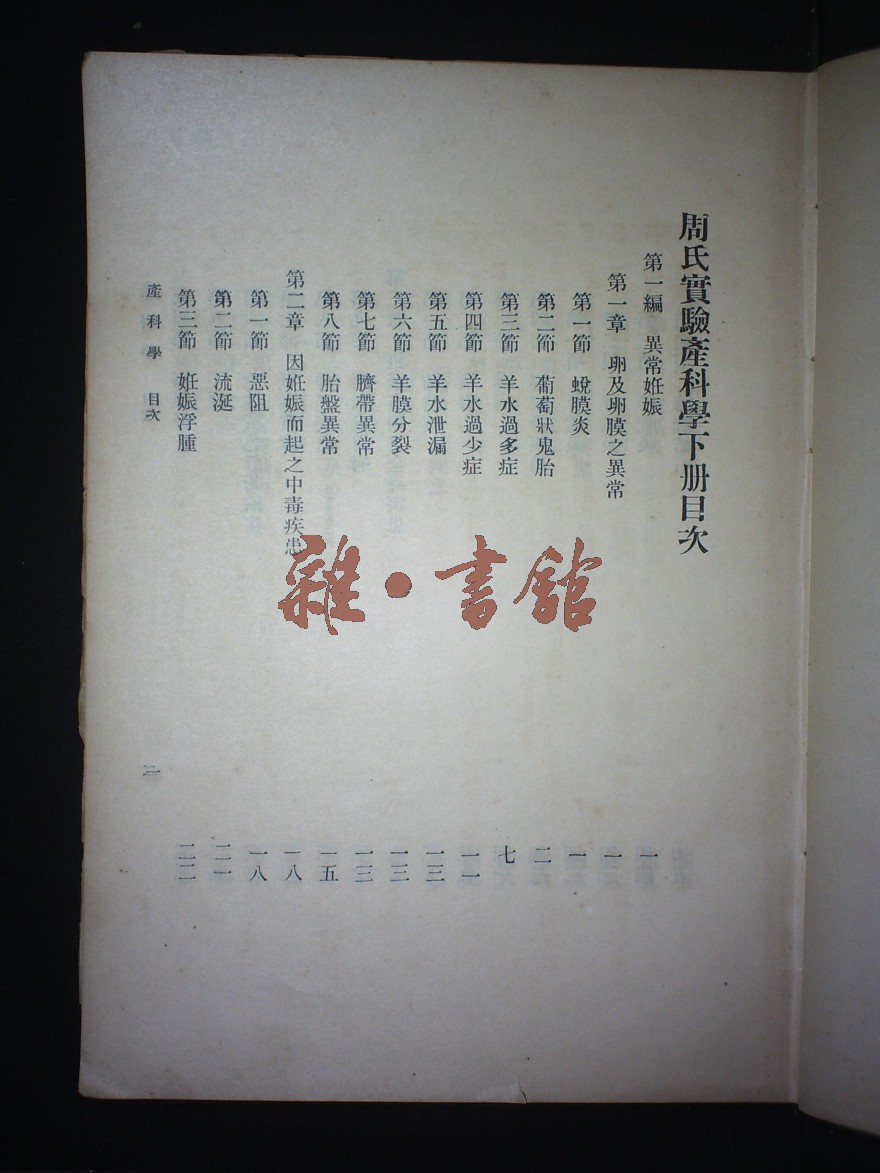 周氏實驗產科學下册目次
第一編　異常姙娠　一
第一章　卵及卵膜之異常　一
第一節　蛻膜炎　一
第二節　葡萄狀鬼胎　二
第三節　羊水過多症　七
第四節　羊水過少症　一一
第五節　羊水泄漏　一三
第六節　羊膜分裂　一三
第七節　臍帶異常　一三
第八節　胎盤異常　一五
第二章　因姙娠而起之中毒疾患　一八
第一節　惡阻　一八
第二節　流涎　二一
第三節　姙娠浮腫　二二
產科學　目次
雜·書館